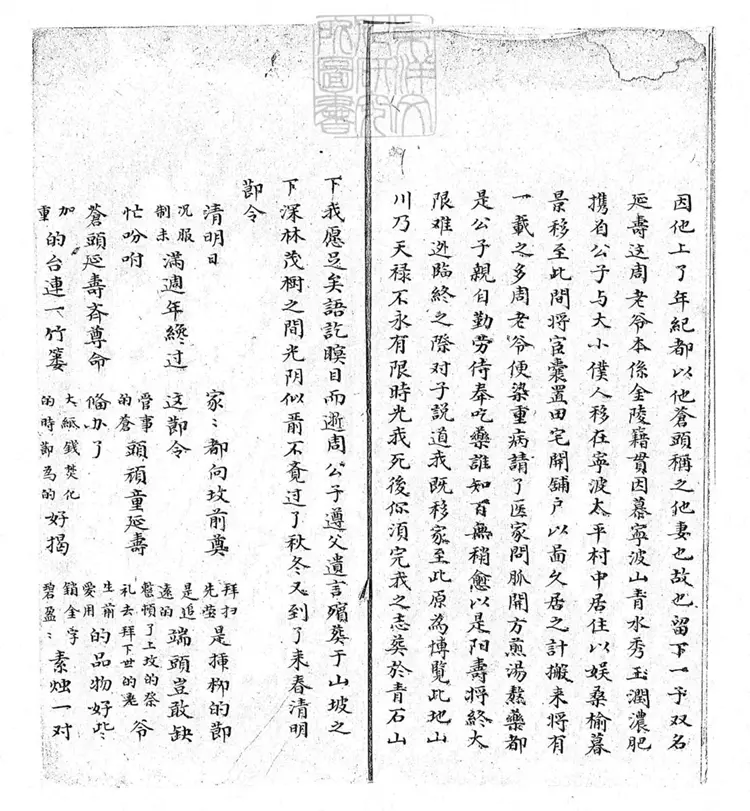 因他上了年紀都以他蒼頭稱之他妻也故也留下一子双名
延壽这周老爷本係金陵籍貫因慕寧波山青水秀玉潤濃肥
携着公子与大小僕人移在寧波太平村中居住以娱桑榆暮
景移至此間将宦囊置田宅開鋪户以啚久居之計搬来将有
一載之多周老爷便染重病請了医家問脉開方煎湯熬藥都
是公子親自勤劳侍奉吃藥誰知百無稍愈以是阳壽将終大
限难迯臨終之際对子説道我既移家至此原為博覧此地山
川乃天禄不永有限時光我死後你須完我之志葬於青石山
下我愿足矣語訖瞑目而逝周公子遵父遺言殯葬于山坡之
下深林茂樹之間光阴似箭不竟过了秋冬又到了来春清明
節令
清明日 家〻都向坟前奠 拜扫先茔是揷柳的節
况服制未满週年纔过 这節令 是追遠的端頭豈敢缺
忙吩咐 管事的蒼頭頑童延壽 整頓了上坟的祭礼去拜下世的老爷
蒼頭延壽斉尊命 俻办了 生前愛用的品物好些
加重的台連一竹篓 大紙錢焚化的時節為的好揭 銷金字碧盈〻素烛一对